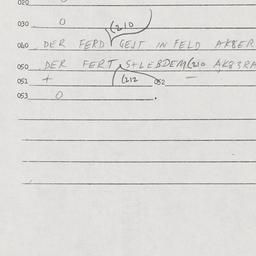 020
030 0 (210
040 DER FERD GEIT IN FELD AKBER
050 DER FERT S+LEBDEM(210 AKBSRA
051 + (212 052 —
053 0 .